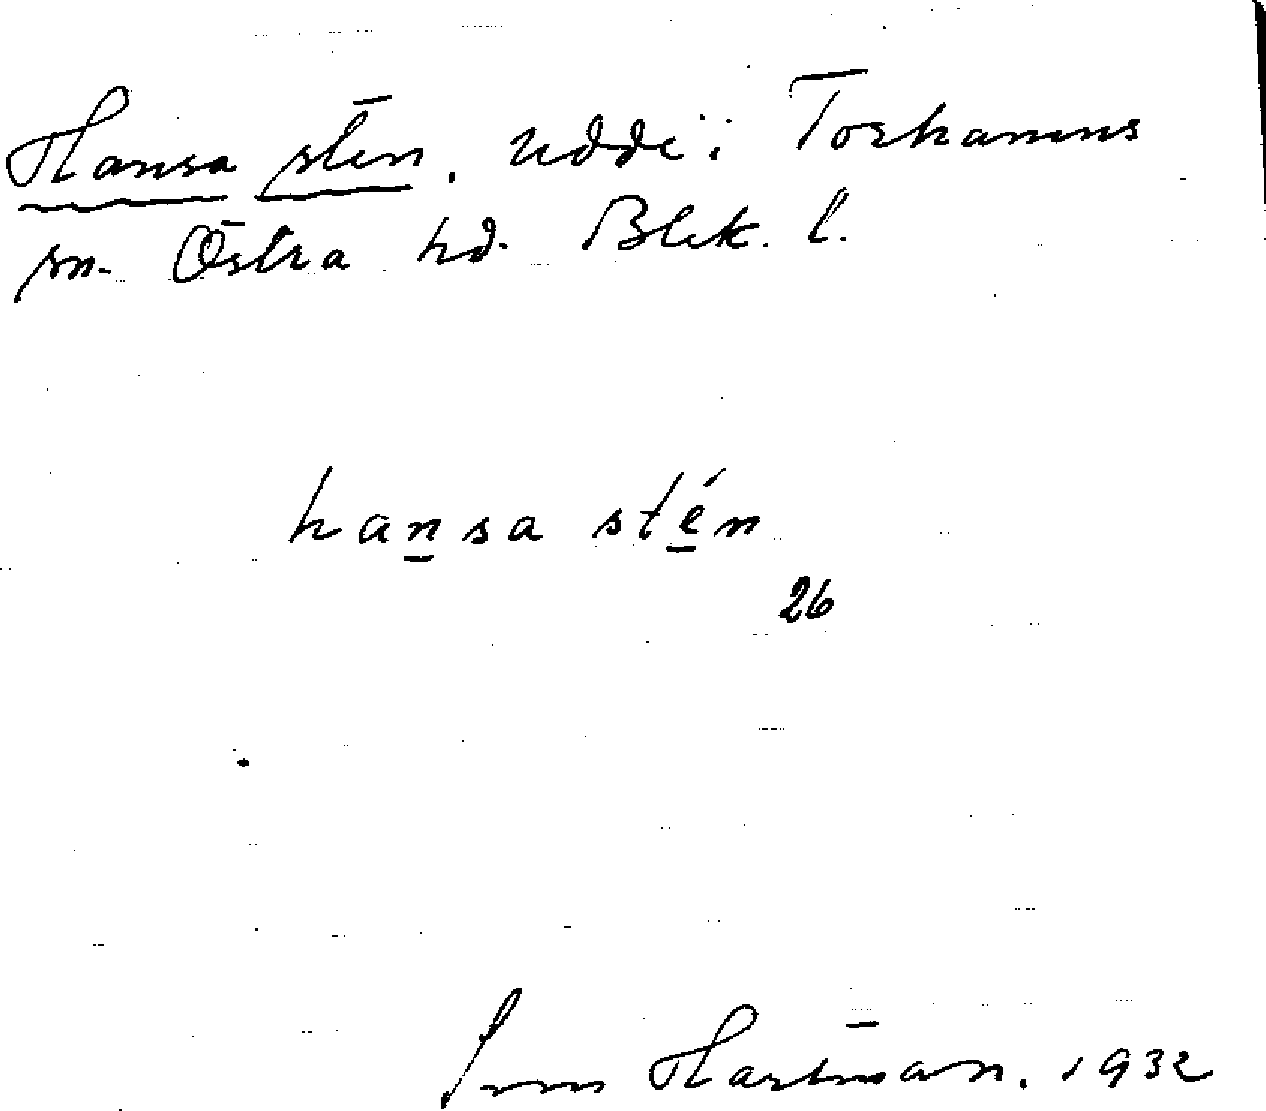 Hansa sten. Udde i Torhamns
sn. Östra hd. Blek. l.
hansa stén
26
Hartman. 1932